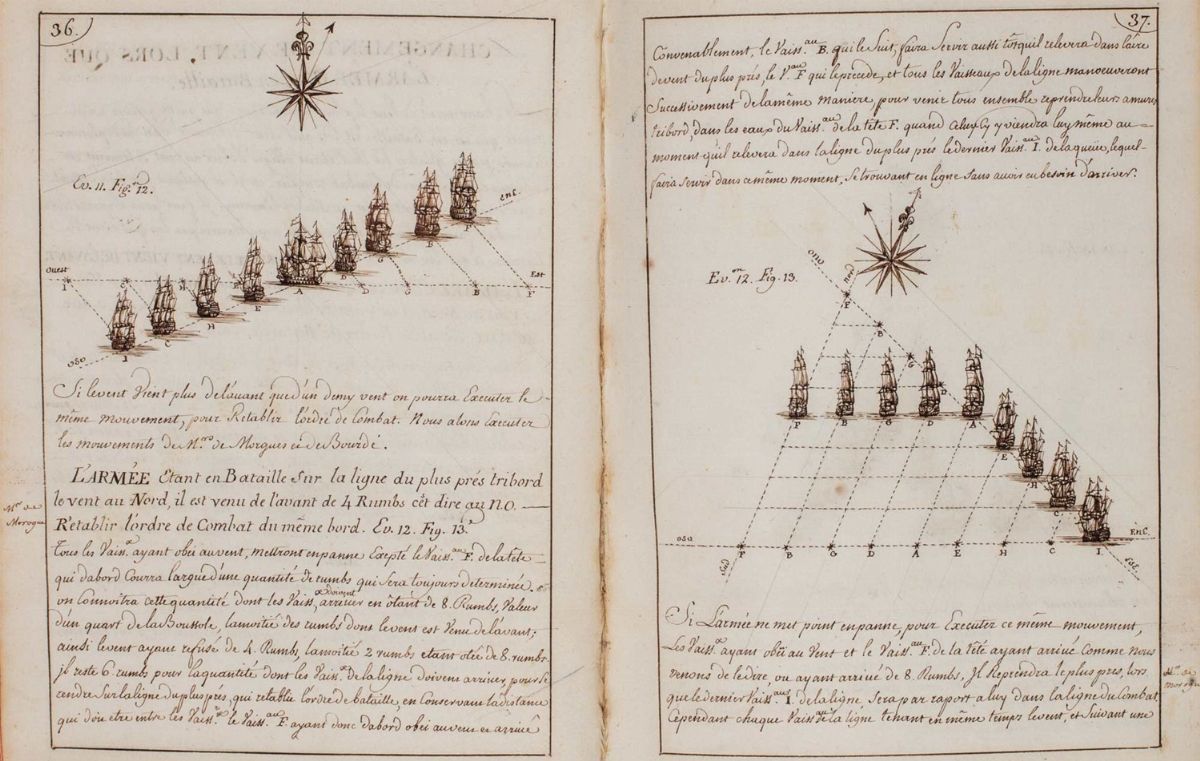 36.
Ev. 11. Fig. 12.
Ouest
ENE.
Est
OSO
I C H E A D G B F
I C H E A D G B F
Si le vent Vient plus de l'auant que d'un demy vent on pourra Executer le
même mouvement, pour Retablir l'ordre de Combat. Nous alons Executer
les mouvements de M.rs de Morgues et de Bourdé.
L'ARMÉE Etant en Bataille sur la ligne du plus prés tribord
le vent au Nord, il est venu de l'avant de 4 Rumbs cét dire au NO.
R'etablir l'ordre de Combat du même bord. Ev. 12. Fig. 13.
M.r de
Morogue
Tous les Vaiss.x ayant obéi au vent, mettront en panne Exepté le Vaiss.au F. de la tête
qui d'abord Courra largue d'une quantité de rumbs qui sera toujours determinée.
on Connoitra cette quantité dont les Vaiss. doivent arriver en ôtant de 8. Rumbs, Valeur
d'un quart de la Boussole, la moitie des rumbs dont le vent est Venu de l'avant;
ainsi le vent ayant refusé de 4. Rumbs, la moitié 2 rumbs etant otée de 8. rumbs.
jl reste 6. rumbs pour la quantité dont les Vais.x de la ligne doivent arriver, pour se
rendre sur la ligne du plus prés, qui retablit l'ordre de bataille, en Conservant la distance
qui doit etre entre les Vaiss. le Vaiss.au F ayant donc d'abord obéi au vent et arrivé
37.
Convenablement, le Vaiss.au B. qui le Suit, faira Servir aussi tôt qu'il relevera dans l'aire
de vent du plus prés, le V.au F qui le précede, et tous les Vaisseaux de la ligne manoeuvront
Successivement de la même maniere, pour venir tous ensemble reprendre leurs amures
tribord, dans les eaux du Vaiss.au de la tête F. quand Celuy Cy y viendra luy même au
moment qu'il relevera dans la ligne du plus pres le dernier Vaiss.au I. de la queüe, lequel
faira servir dans ce même moment, Se trouvant en ligne Sans avoir eu besoin d'arriver.
Ev.on 12. Fig. 13.
ONO
Sud
F
B
G
D
F B G D A
E
H
C
OSO F B G D A E H C I ENE.
Sud
Est.
Si L'armée ne met point en panne, pour Executer ce même mouvement,
Les Vaiss.x ayant obéi au Vent et le Vaiss.au F. de la Tété ayant arrivé Comme nous
venons de le dire, ou ayant arrivé de 8. Rumbs, Jl Reprendra le plus pres, lors
que le dernier Vaiss.au I. de la ligne, Sera par raport a luy dans la ligne du Combat
Cependant chaque Vaiss.au de la ligne tenant en même temps le vent, et Suivant une
M.r de